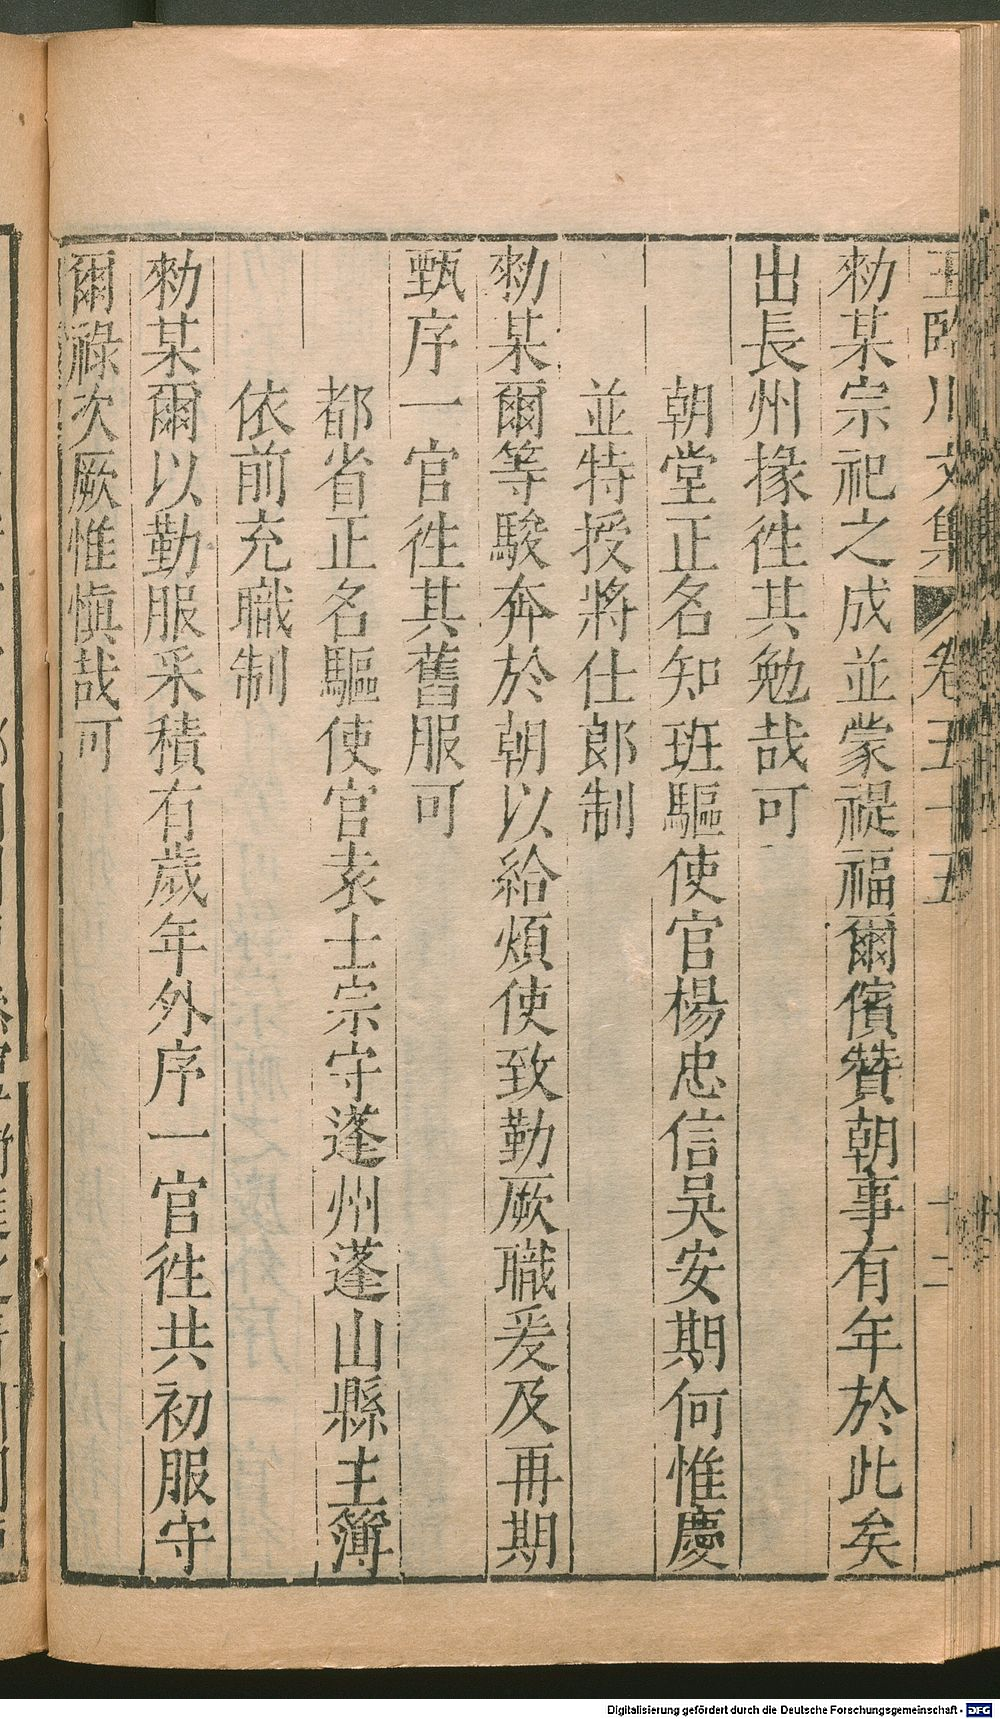 王臨川文集 卷五十五 十二
勑某宗祀之成並蒙禔福爾儐贊朝事有年於此矣
出長州掾徃其勉哉可
朝堂正名知班驅使官楊忠信吳安期何惟慶
並特授將仕郎制
勑某爾等駿奔於朝以給煩使致勤厥職爰及再期
甄序一官徃其舊服可
都省正名驅使官袁士宗守蓬州蓬山縣主簿
依前充職制
勑某爾以勤服采積有歲年外序一官徃共初服守
爾祿次厥惟慎哉可
Digitalisierung gefördert durch die Deutsche Forschungsgemeinschaft - DFG